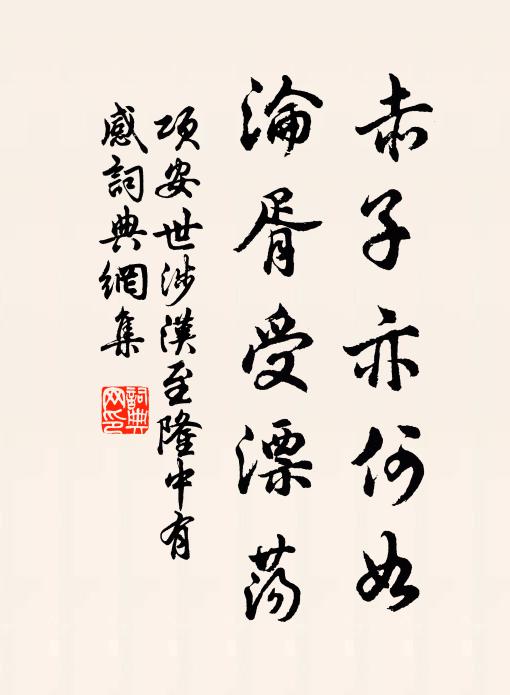 赤子亦何如
淪胥受漂蕩
項安世涉漢至隆中有
感詞典網集
詞典
网印